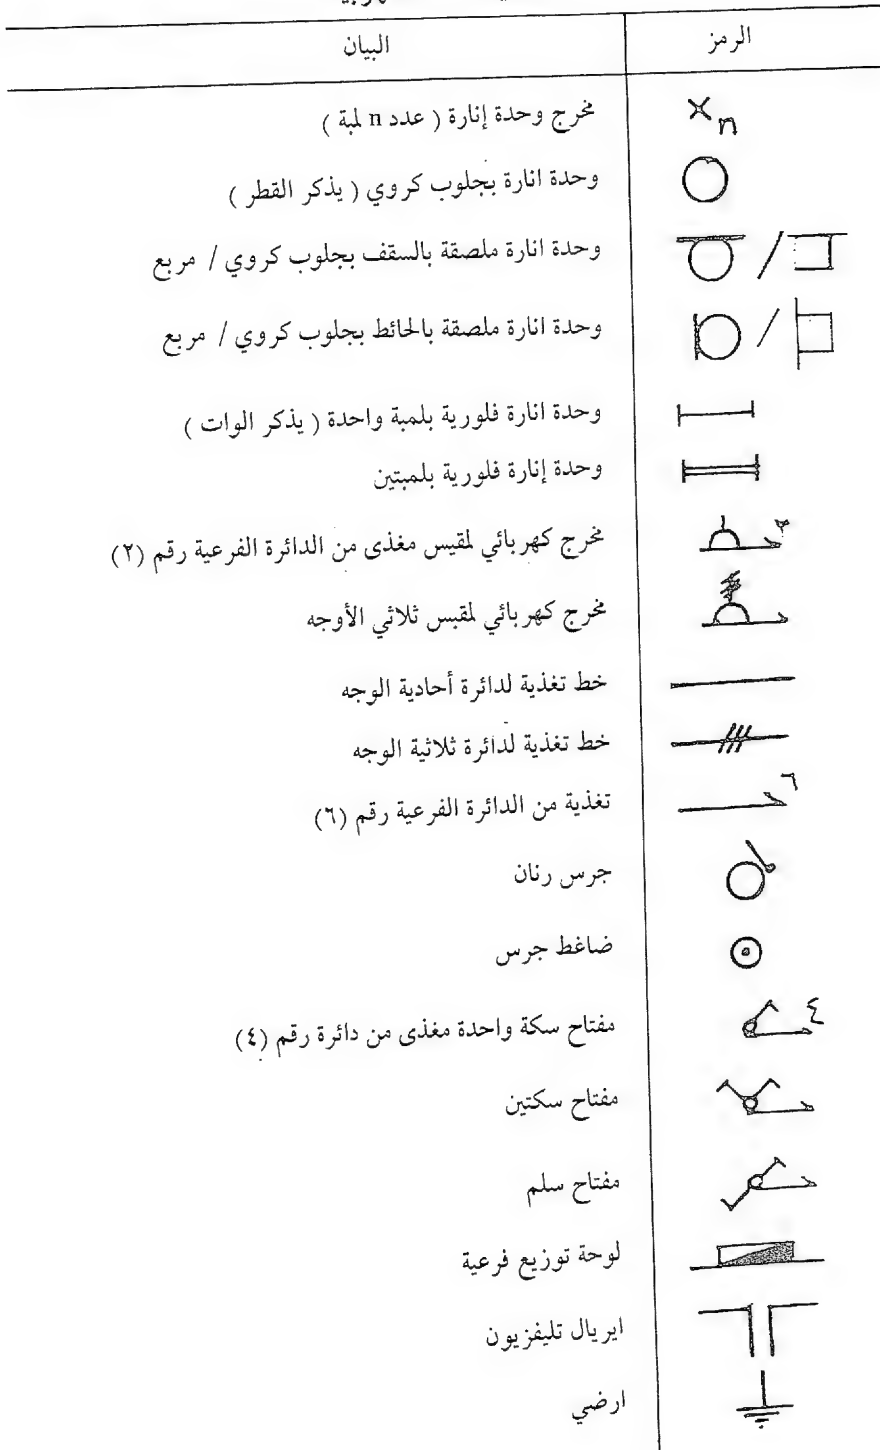 الرمز البيان
× n مخرج وحدة إنارة ( عدد n لمبة )
وحدة انارة بجلوب كروي ( يذكر القطر )
/ وحدة انارة ملصقة بالسقف بجلوب كروي / مربع
/ وحدة انارة ملصقة بالحائط بجلوب كروي / مربع
وحدة انارة فلورية بلمبة واحدة ( يذكر الوات )
وحدة إنارة فلورية بلمبتين
٢ مخرج كهربائي لمقيس مغذى من الدائرة الفرعية رقم (٢)
مخرج كهربائي لمقبس ثلاثي الأوجه
خط تغذية لدائرة أحادية الوجه
خط تغذية لدائرة ثلاثية الوجه
٦ تغذية من الدائرة الفرعية رقم (٦)
جرس رنان
ضاغط جرس
٤ مفتاح سكة واحدة مغذى من دائرة رقم (٤)
مفتاح سكتين
مفتاح سلم
لوحة توزيع فرعية
ايريال تليفزيون
ارضي